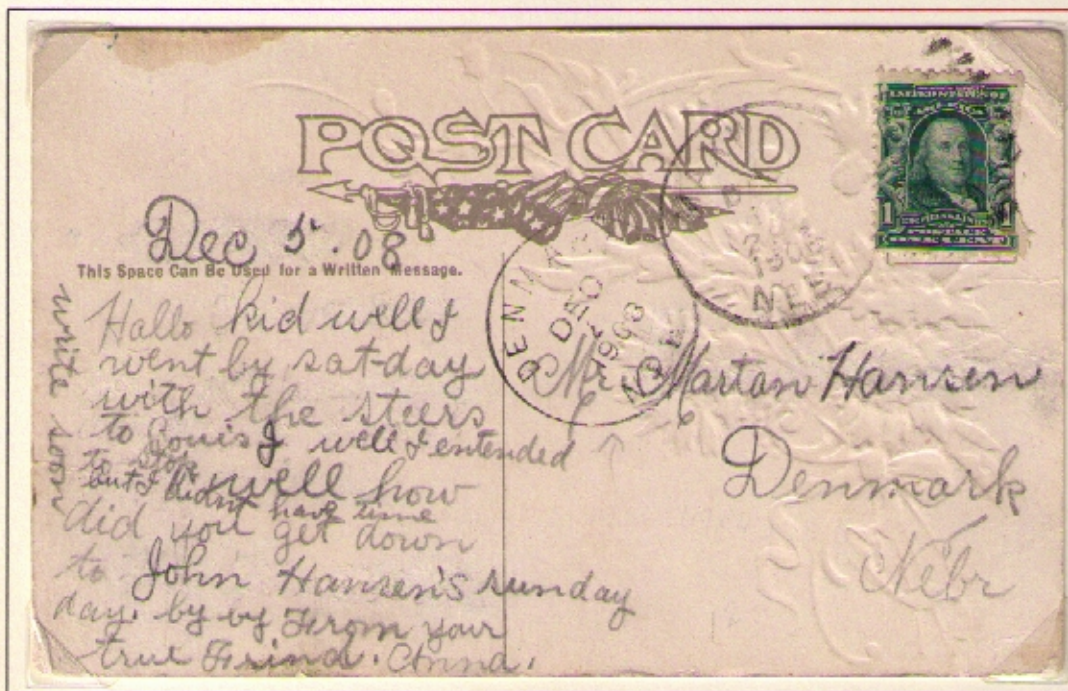 POST CARD
Dec 5. 08
This Space Can Be Used for a Written Message.
Hallo kid well I
went by sat-day
with the steers
to Louis J well I entended
to stop
but I didnt have time
well how
did you get down
to John Hansen's sunday
day. by by From your
true Frind. Anna.
write soon
DENMARK
DEC
1908
NEB
1908
NEB
1 POSTAGE 1
ONE CENT
Mr. Martan Hansen
Denmark
Nebr